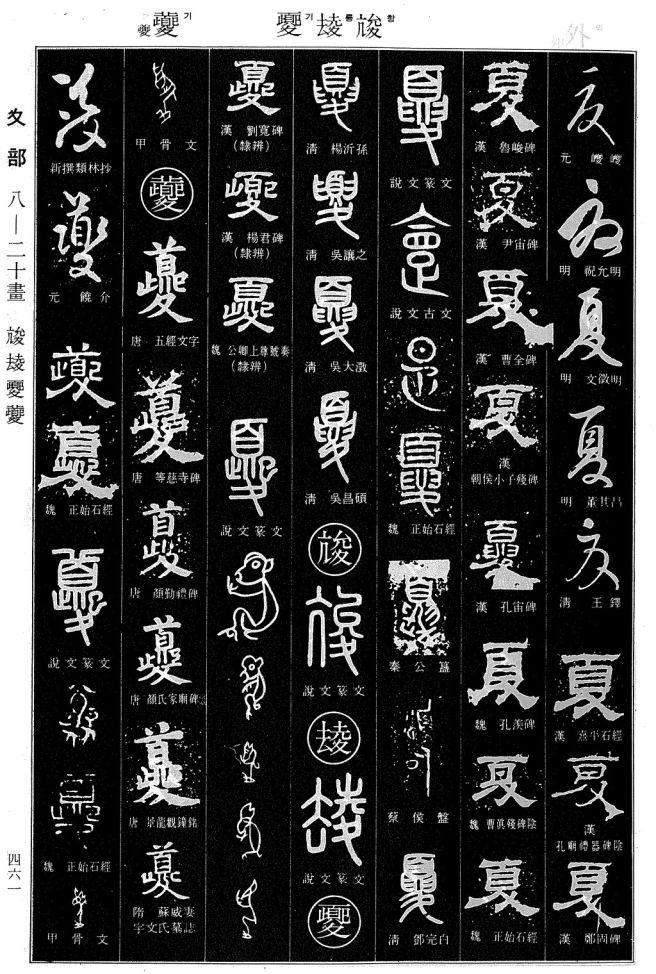 夔 기
夒 기
릉
함
外
夊部 八—二十畫
夒夔
四六一
夏
元 巎巎
夏
明 祝允明
夏
明 文徵明
夏
明 董其昌
夏
清 王鐸
夏
漢 熹平石經
夏
漢
孔廟禮器碑陰
夏
漢 鄭固碑
夏
漢 魯峻碑
夏
漢 尹宙碑
夏
漢 曹全碑
夏
漢
朝侯小子殘碑
夏
漢 孔宙碑
夏
魏 孔羨碑
夏
魏 曹眞殘碑陰
夏
魏 正始石經
夏
說文篆文
說文古文
夏
魏 正始石經
夏
秦公簋
蔡侯盤
夏
清 鄧完白
夏
清 楊沂孫
夏
清 吳讓之
夏
清 吳大澂
夏
清 吳昌碩
說文篆文
說文篆文
夒
漢 劉寬碑
(隸辨)
漢 楊君碑
(隸辨)
魏 公卿上尊號奏
(隸辨)
夒
說文篆文
甲骨文
夔
夔
唐 五經文字
夔
唐 等慈寺碑
夔
唐 顏勤禮碑
夔
唐 顏氏家廟碑
夔
唐 景龍觀鐘銘
夔
隋 蘇威妻
宇文氏墓誌
夔
新撰類林抄
夔
元 饒介
夔
魏 正始石經
夔
說文篆文
魏 正始石經
甲骨文